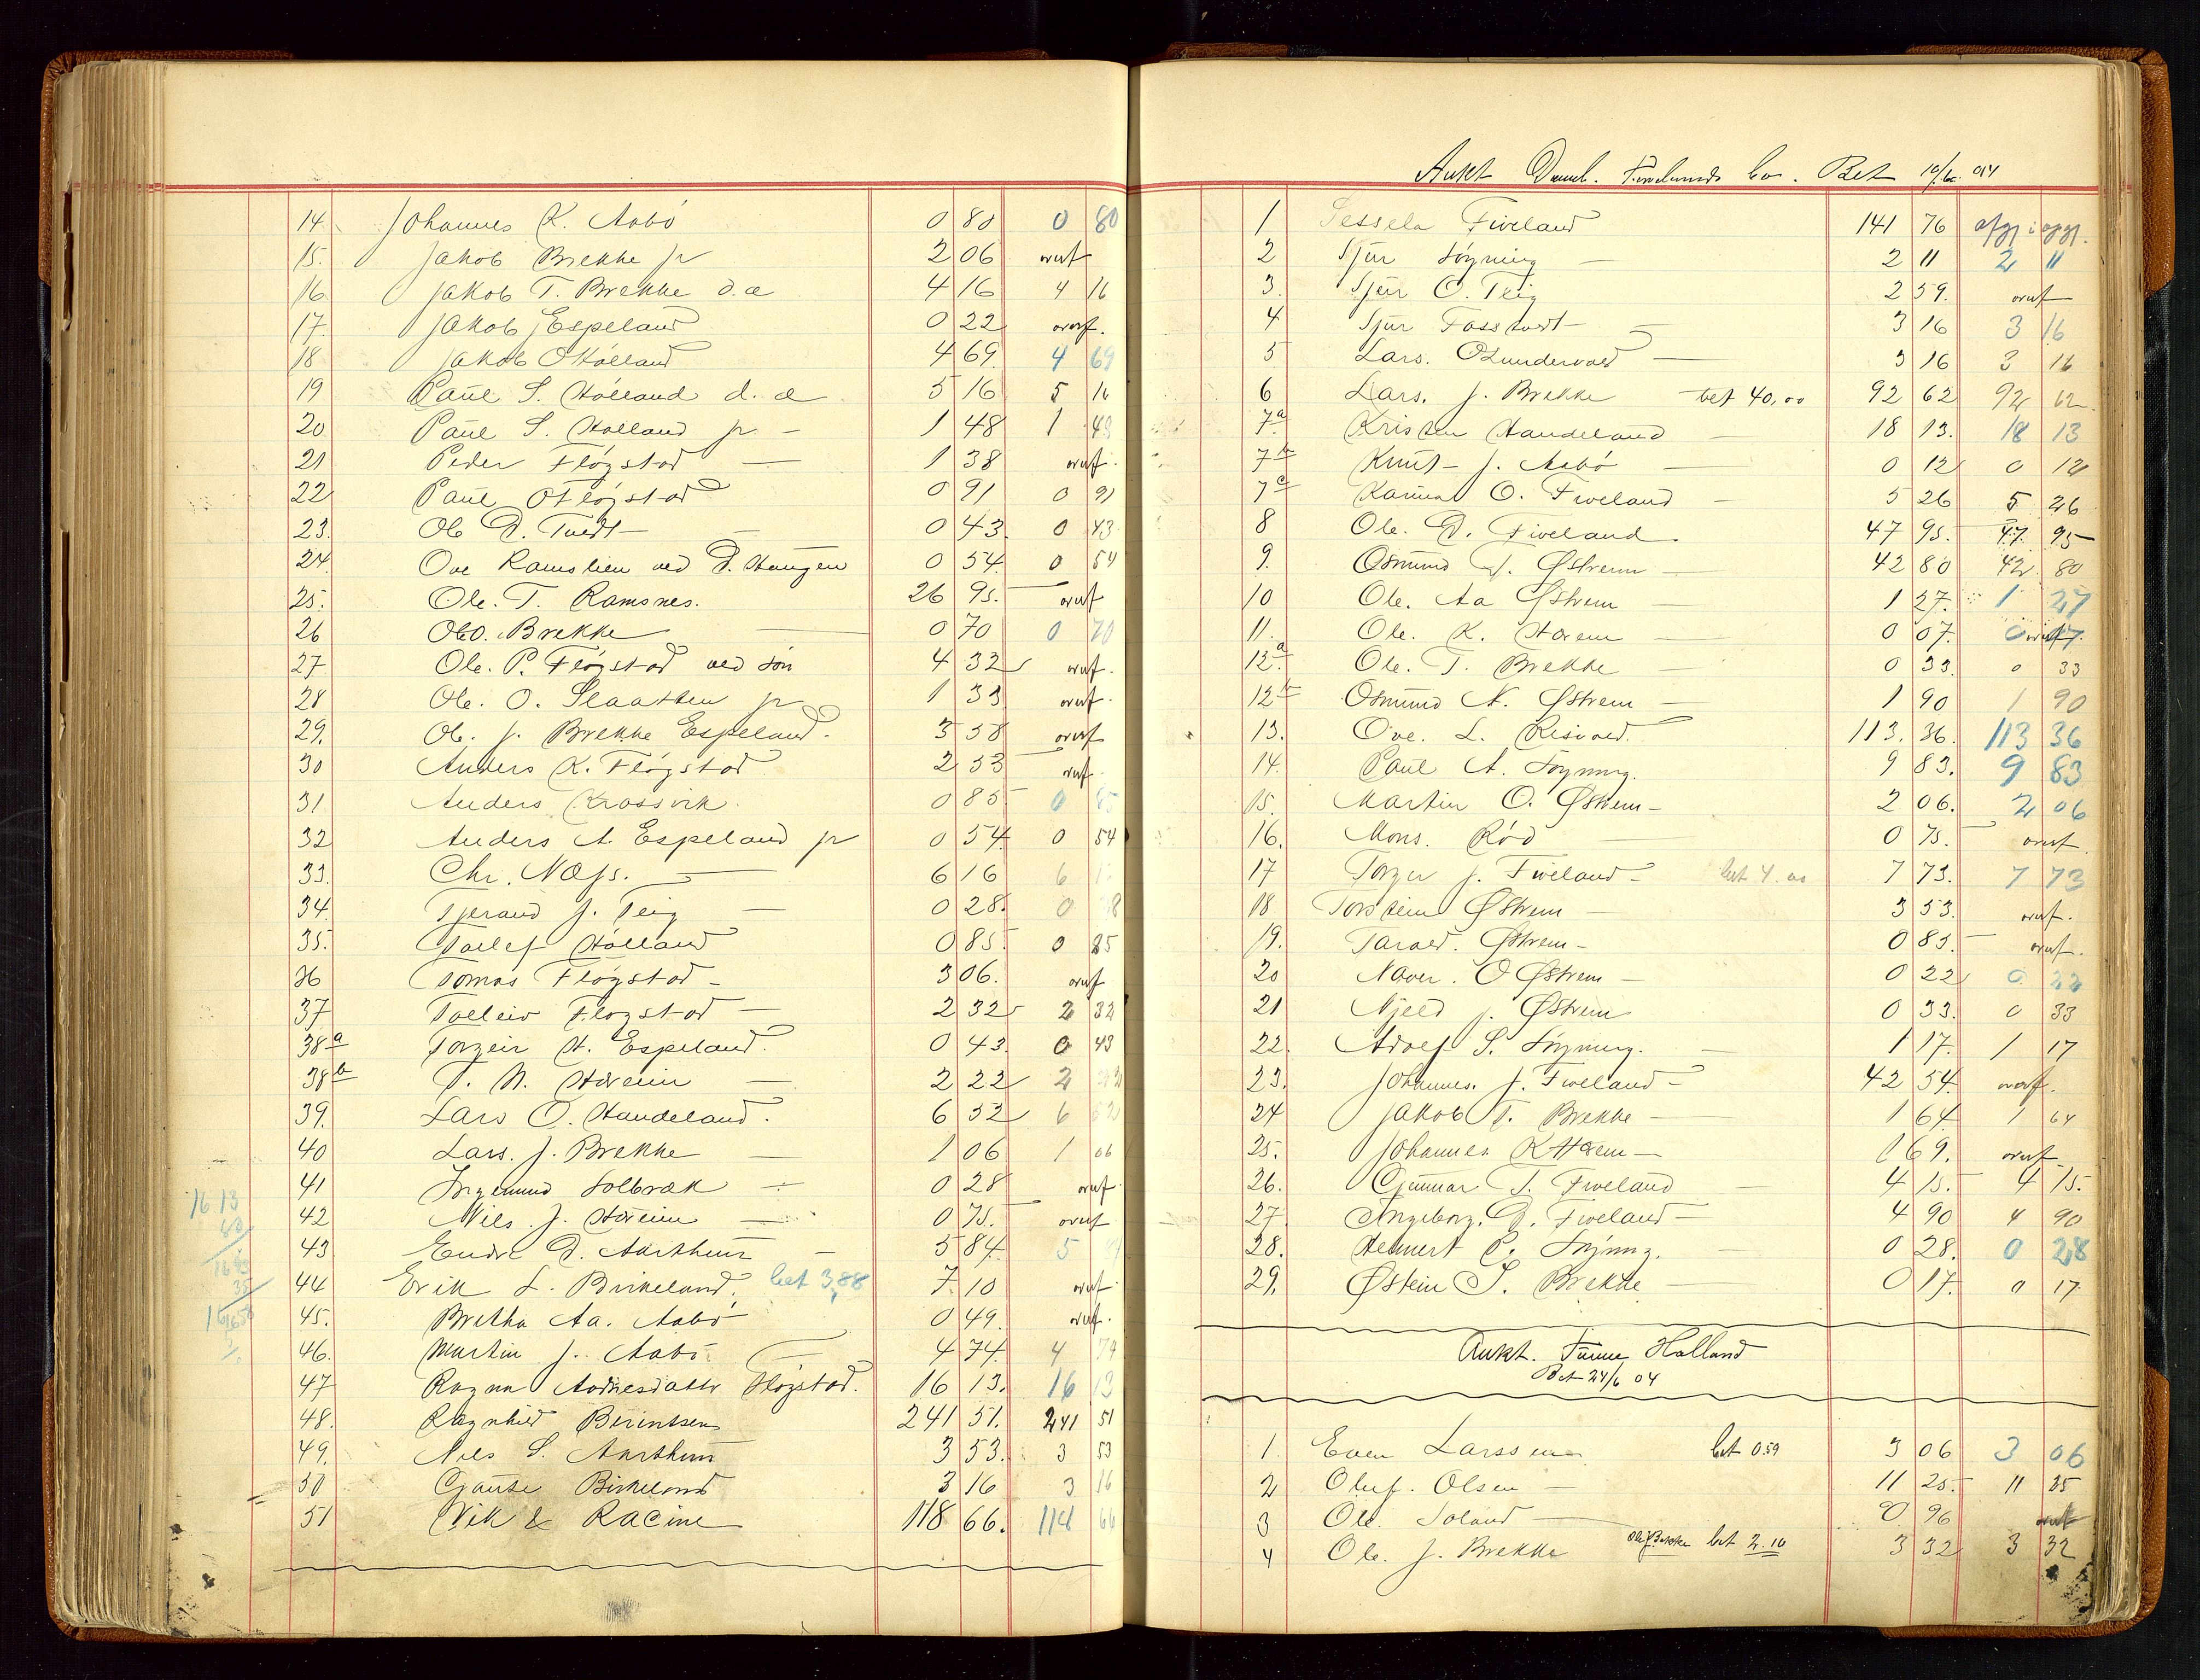 14 Johannes K. Aabö 0 80 0 80
15. Jakob Brekke jr 2 06 overf
16 Jakob T. Brekke d.æ 4 16 4 16
17. Jakob J Espeland 0 22 overf.
18 Jakob O Hólland 4 69 4 69
19 Paul S. Hólland d. æ 5 16 5 16
20 Paul S. Holland jr - 1 48 1 48
21 Peder Flógstad — 1 38 overf.
22 Paul O Flógstad 0 91 0 91
23. Ole D. Tvedt — 0 43. 0 43
24. Ove Ramslien ved D. Haugen 0 54. 0 54
25. Ole. T. Ramsnes. 26 95. overf
26 Ole O. Brekke — 0 70 0 70
27 Ole. P. Flógstad ved són 4 32 overf.
28 Ole. O. Slaatten jr 1 33 overf.
29. Ole. J. Brekke Espeland. 3 58 overf
30 Anders K. Flógstad 2 33 overf.
31 Anders Krossvik. 0 85 0 85
32 Anders A. Espeland jr 0 54 0 54
33. Chr. Næss. — 6 16 6
34. Tjerand J. Teig — 0 28. 0 28
35. Tollef Hólland 0 85. 0 85
36 Tomas Flógstad - 3 06. overf
37 Tolleiv Flogstad — 2 32 2 32
38a Torgeir H. Espeland. 0 43. 0 43
38b T. N. Høreim — 2 22 2 22
39. Lars O. Handeland. 6 32 6 32
40 Lars. J. Brekke — 1 06 1 06
41 Ingemund Solbræk — 0 28 overf.
42 Niels. J. Høreim — 0 75. overf
43 Endre D. Aarthun — 5 84. 5 84
44 Erik L. Birkeland. bet 3,88 7 10 overf
45. Bretha Aa. Aabó 0 49. overf.
46. Martin J. Aabó 4 74. 4 74
47 Ragna Andreasdatter Flógstad. 16 13. 16 13
48. Ragnhild Berintsen 241 51. 241 51
49. Nils S. Aarthun 3 53. 3 53
50 Gaute Birkeland 3 16 3 16
51 Vik & Racine 118 66. 118 66
16 13
Aukt Bet 10/6 04
1 Sessela Fiveland 141 76 afgj i opgj.
2 Sjur Sóyning — 2 11 2 11
3. Sjur O. Teig 2 59. overf
4 Sjur Fosstvedt — 3 16 3 16
5 Lars. O Lundevold — 3 16 3 16
6 Lars. J. Brekke — bet 40,00 92 62 92 62
7a Kristen Handeland — 18 13. 18 13
7b Knut J. Aabó — 0 12 0 12
7c Karina O. Fiveland — 5 26 5 26
8 Ole. D. Fiveland. 47 95. 47. 95
9. Osmund T. Østrem — 42 80 42. 80
10 Ole. Aa Østrem — 1 27. 1 27
11. Ole. K. Hørem — 0 07. 0 07.
12a Ole. T. Brekke — 0 33. 0 33
12b Osmund N. Østrem — 1 90 1 90
13. Ove. L. Risvold. 113. 36. 113 36
14. Paul A. Sóyning. 9 83. 9 83
15. Martin O. Østrem — 2 06. 2 06
16. Mons. Ród — 0 75. overf.
17 Torger J. Fiveland — bet 4.00 7 73. 7 73
18 Torstein Østrem — 3 53. overf.
19. Tarald. Østrem — 0 85. overf.
20 Naver. O Østrem — 0 22 0 22
21 Njeld J. Østrem 0 33. 0 33
22. Adolf S. Sóyning. — 1 17. 1 17
23. Johannes. J. Fiveland — 42 54. overf.
24 Jakob T. Brekke — 1 64. 1 64
25. Johannes K Hørem — 1 69. overf
26. Gunnar T. Fiveland — 4 15. 4 15.
27. Ingeborg. D. Fiveland — 4 90 4 90
28. Helmert P. Sóyning. — 0 28. 0 28
29. Østein S. Brekke — 0 17. 0 17.
Aukt. Holland
Bet 24/6 04
1. Even Larssen bet 0.59 3 06 3 06
2 Oluf. Olsen — 11 25. 11 25
3 Ole. Soland — 0 96 overf
4 Ole. J. Brekke bet 2.10 3 32 3 32